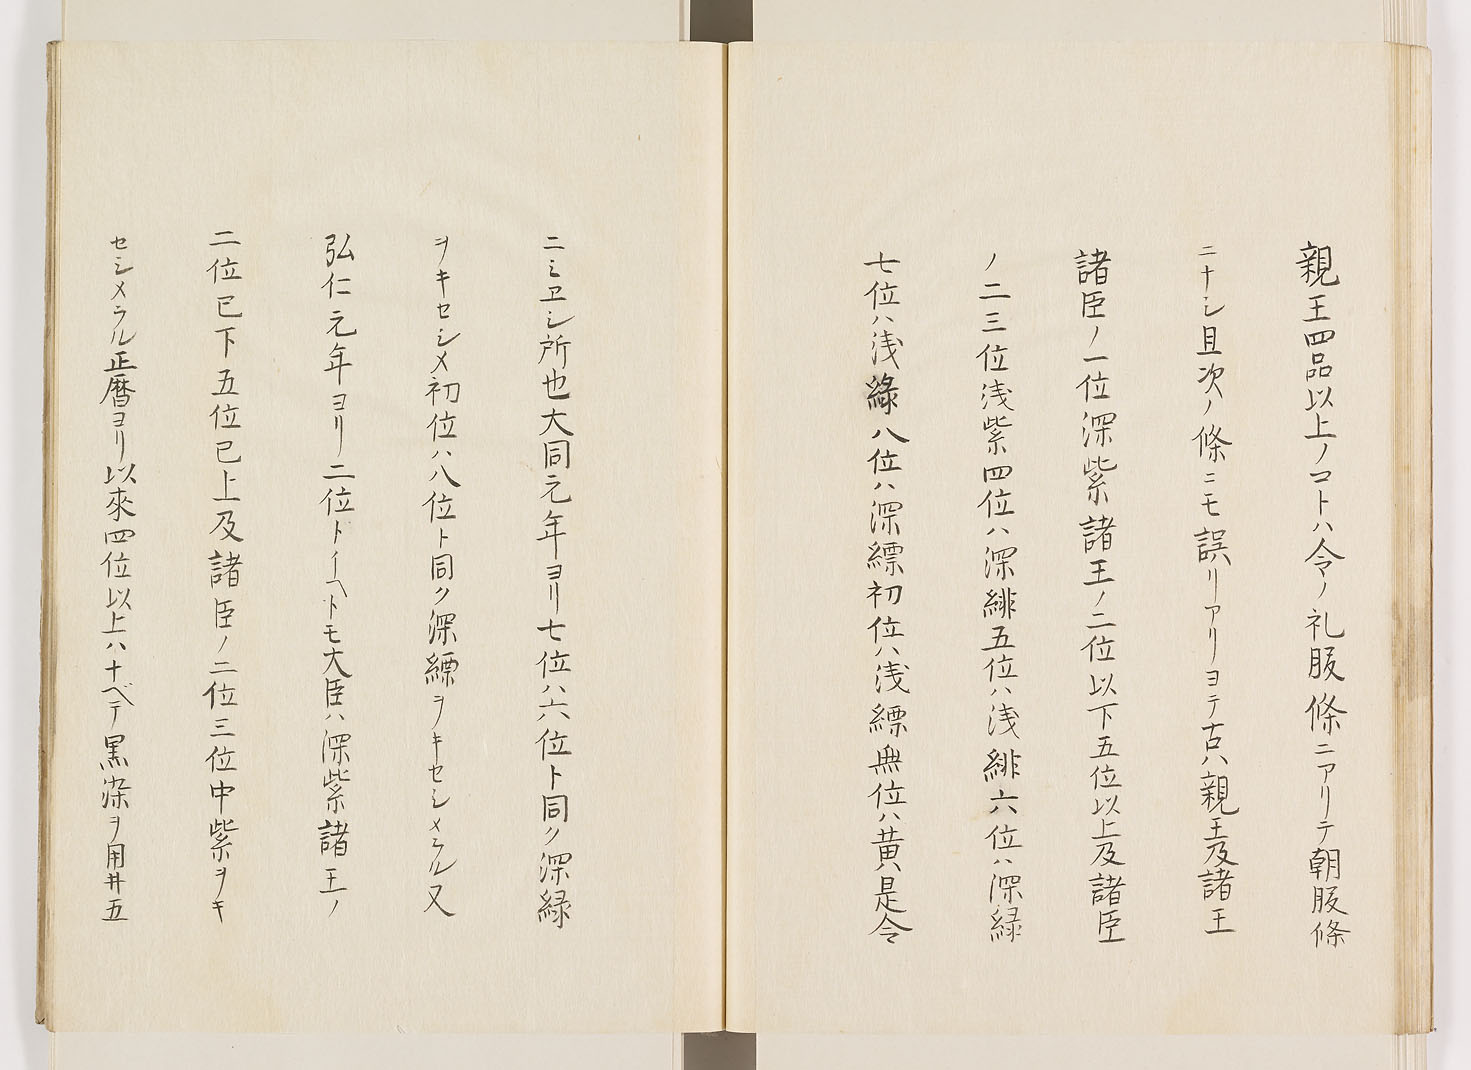 親王四品以上ノコトハ令ノ礼服條ニアリテ朝服條
ニナシ且次ノ條ニモ誤リアリヨテ古ハ親王及諸王
諸臣ノ一位深紫諸王ノ二位以下五位以上及諸臣
ノ二三位浅紫四位ハ深緋五位ハ浅緋六位ハ深緑
七位ハ浅綠八位ハ深縹初位ハ浅縹無位ハ黄是令
ニミヱシ所也大同元年ヨリ七位ハ六位ト同ク深緑
ヲキセシメ初位ハ八位ト同ク深縹ヲキセシメラル又
弘仁元年ヨリ二位トイヘトモ大臣ハ深紫諸王ノ
二位已下五位已上及諸臣ノ二位三位中紫ヲキ
セシメラル正暦ヨリ以來四位以上ハナベテ黒染ヲ用井五